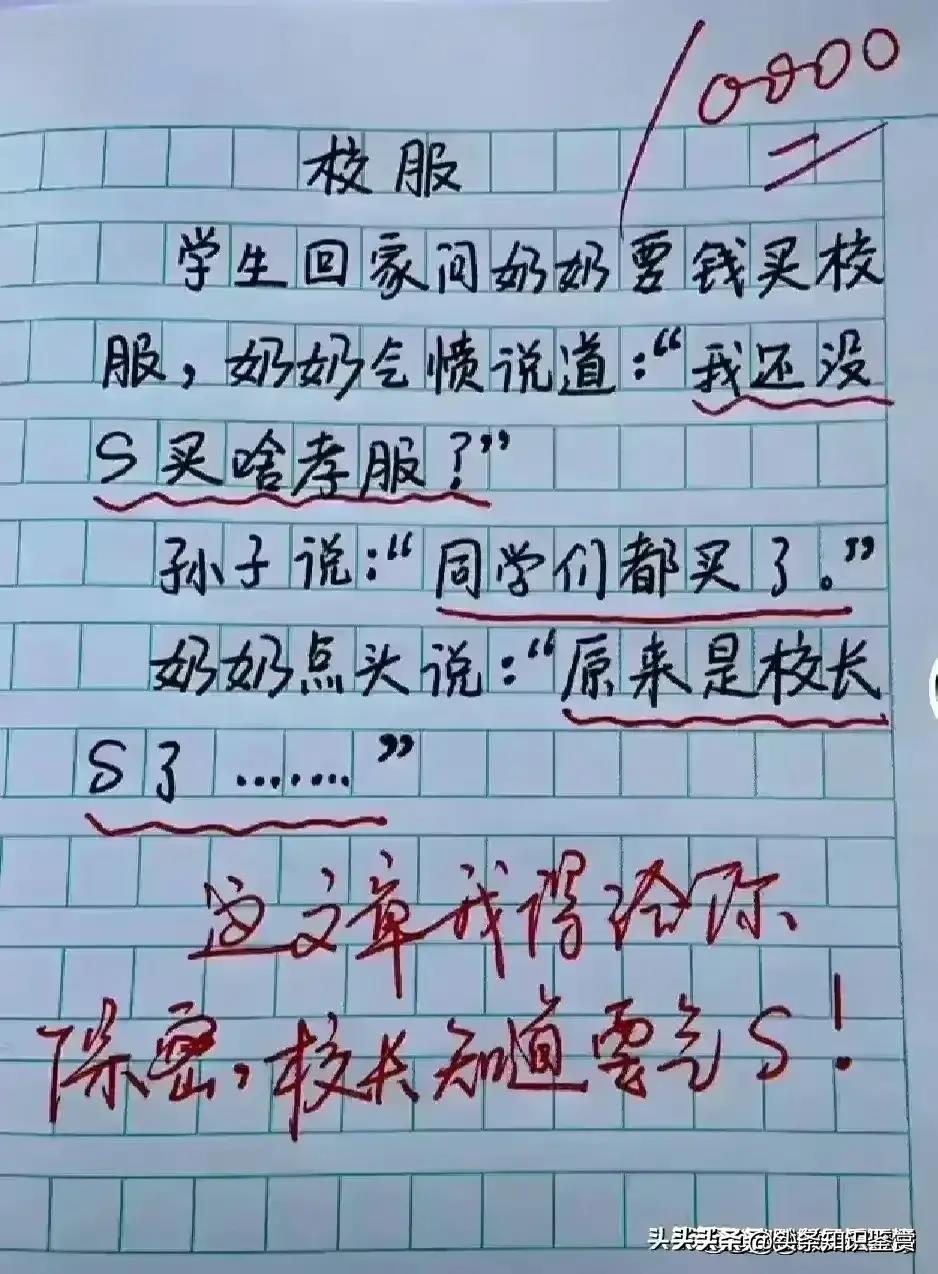 10000
校服
学生回家问奶奶要钱买校
服，奶奶气愤说道：“我还没
S买啥孝服？”
孙子说：“同学们都买了。”
奶奶点头说：“原来是校长
S了……”
这文章我得给你
保密，校长知道要气S！
头条 @头条知识鉴赏